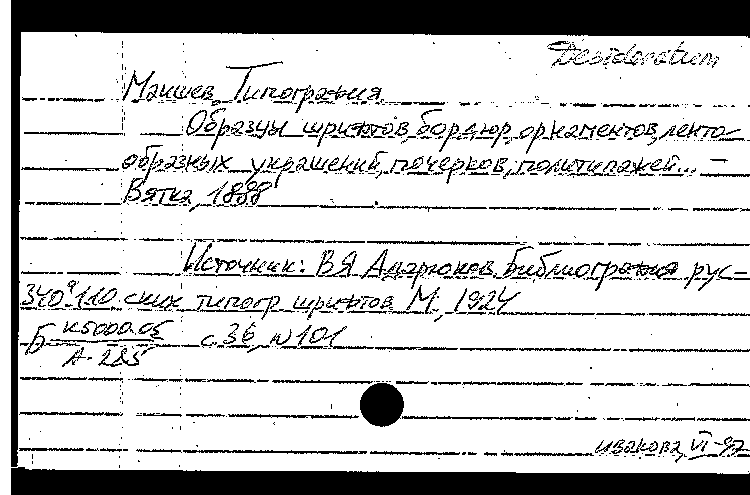 Desideratum
Макшеев, Типография
Образцы шрифтов, бордюр, орнаментов, ленто-
образных украшений, почерков, политипажей... –
Вятка, 1888
Источник: В Я Адарюков. Библиография рус-
340°110 ских типогр шрифтов М., 1924
Б К5000.05 с 36, N 101
А-285
иванова, VI-97